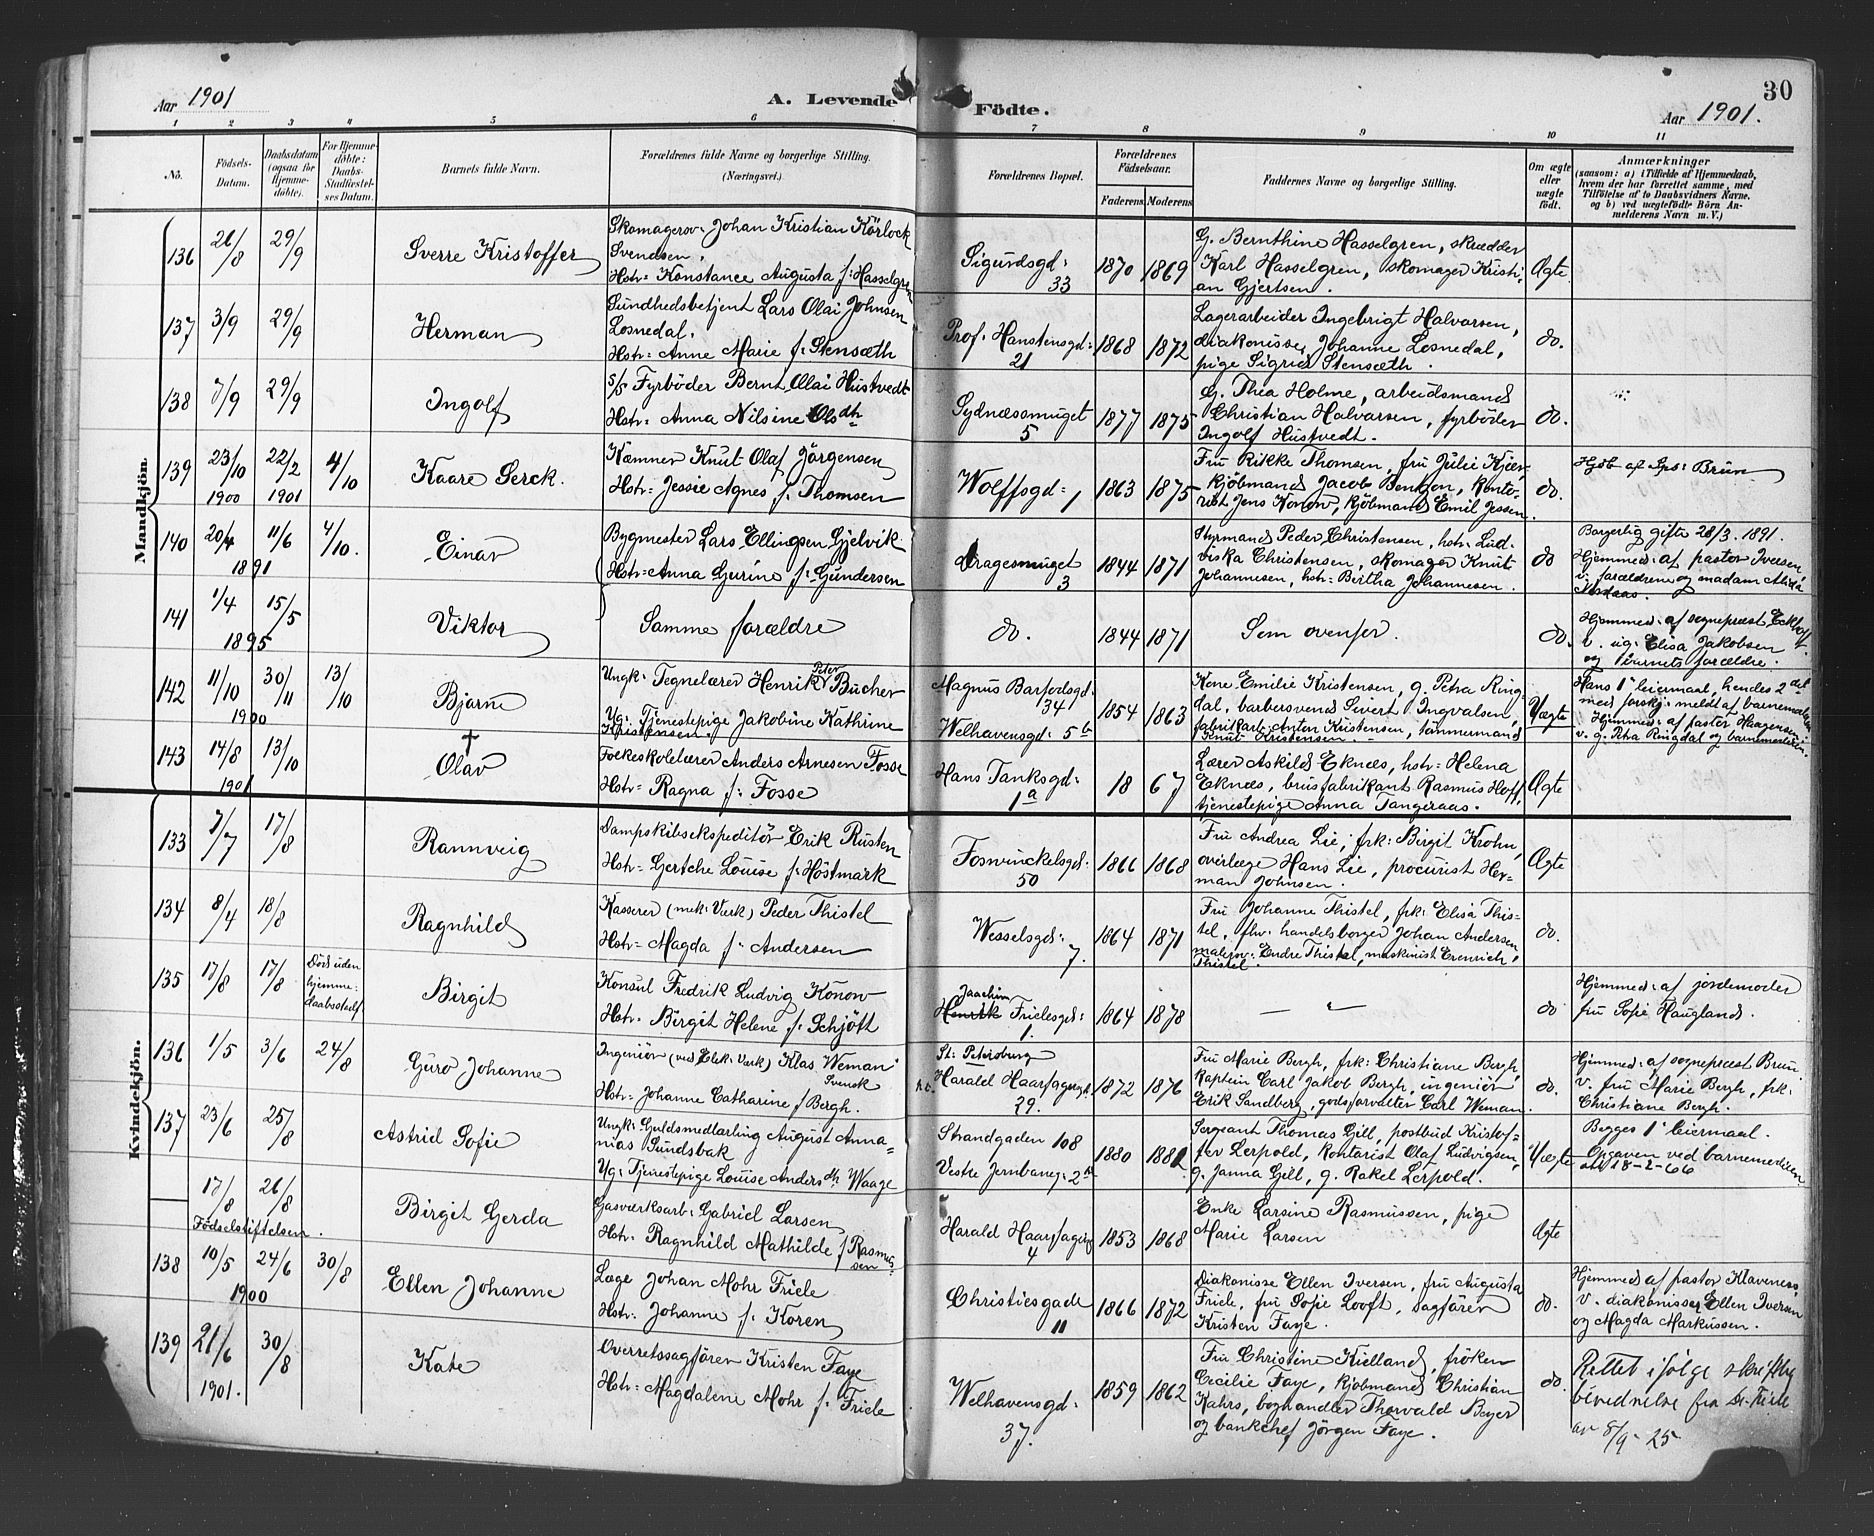 30
Aar 1901 A. Levende Födte. Aar 1901.
1 2 3 4 5 6 7 8 9 10 11
No.
Födsels-Datum.
Daabsdatum (ogsaa for Hjemmedöbte).
For Hjemmedöbte: Daabs-Stadfæstelses Datum.
Barnets fulde Navn.
Forældrenes fulde Navne og borgerlige Stilling.
(Næringsvei.)
Forældrenes Bopæl.
Forældrenes Födselsaar.
Faderens Moderens
Faddernes Navne og borgerlige Stilling.
Om ægte eller uægte födt.
Anmærkninger
(saasom: a) i Tilfælde af Hjemmedaab,
hvem der har forrettet samme, med
Tilföielse af to Daabsvidners Navne.
og b) ved uægtefödte Börn An-
melderens Navn m. V.)
Mandkjön.
136 28/8 29/9 Sverre Kristoffer
Skomagersv. Johan Kristian Körlock
Svendsen.
Hstr: Konstance Augusta f: Hasselgren
Sigurdsgd:
33
1870 1869
G. Bernthine Hasselgren, skrædder
Karl Hasselgren, skomager Kristi-
an Gjertsen.
Ægte
137 3/9 29/9 Herman
Sundhedsbetjent Lars Olai Johnsen
Losnedal,
Hstr: Anne Marie f: Stensæth
Prof. Hanstensgd:
21
1868 1872
Lagerarbeider Ingebrigt Halvorsen,
diakonisse Johanne Losnedal,
pige Sigrid Stensæth.
do.
138 7/9 29/9 Ingolf
s/s Fyrböder Bernt Olai Hustvedt
Hstr: Anna Nilsine Olsdh
Sydnæssmuget
5
1877 1875
G. Thea Holme, arbeidsmand
Christian Halvorsen, fyrböder
Ingolf Hustvedt.
do.
139 23/10 22/2 4/10 Kaare Serck.
1900 1901
Kæmner Knut Olaf Jörgensen
Hstr: Jessie Agnes f. Thomsen
Wolffsgd: 1
1863 1875
Fru Rikke Thomsen, fru Julie Kjær,
kjöbmand Jacob Bentzon, konto-
rist Jens Konow, kjöbmand Emil Jessen.
do.
Hjdb af Sps: Brun
140 20/4 11/6 4/10. Einar
1891
Bygmester Lars Ellingsen Gjelvik
Hstr: Anna Gurine f: Gundersen
Dragesmuget
3
1844 1871
Styrmand Peder Christensen, hstr: Lud-
viska Christensen, skomager Knut
Johannesen, hstr: Bertha Johannesen.
do
Borgerlig gifte 28/3. 1891.
Hjemmed: af pastor Iversen,
v. forældrene og madam Alida
141 1/4 15/5 Viktor
1895
Samme forældre
do.
1844 1871
Som ovenfor.
do.
Hjemmed: af sogneprest Eckhoff.
v. ug: Elisa Jakobsen
og barnets forældre.
142 11/10 30/11 13/10 Bjarne
1900
Ungk: Tegnelærer Henrik Peter Bucher
Ug: Tjenestepige Jakobine Kathrine
Kristensen.
Magnus Barfodsgd:
34
Welhavensgd: 5b
1854 1863
Kone Emilie Kristensen, g. Petra Ring-
dal, barbersvend Sivert Ingvalsen,
fabrikarb: Anton Kristensen, tömmermand
Knut Kristensen.
Uægte
Hans 1' leiermaal, hendes 2det
med forskj: meldt af barnemoderen.
Hjemmed: af pastor Haagensen
v. g. Petra Ringdal og barnemoderen.
143 14/8 13/10 † Olav
1901
Folkeskolelærer Anders Arnesen Fosse
Hstr: Ragna f: Fosse
Hans Tanksgd:
1a
18 67
Lærer Askild Eknæs, hstr: Helena
Eknæs, brusfabrikant Rasmus Hoff,
tjenestepige Anna Tangeraas.
Ægte
Kvindekjön.
133 7/7 17/8 Rannveig
Dampskibsekspeditör Erik Rusten
Hstr: Gertche Louise f: Höstmark
Fosvinckelsgd:
50
1866 1868
Fru Andrea Lie, frk: Birgit Krohn,
overlæge Hans Lie, procurist Her-
man Johnsen.
Ægte
134 8/4 18/8 Ragnhild
Kasserer (mek: Værk) Peder Thistel
Hstr: Magda f: Andersen
Wesselsgd:
7.
1864 1871
Fru Johanne Thistel, frk: Elisa This-
tel, fhv: handelsborger Johan Andersen
malersv: Endre Thistel, maskinist Erenrich
Thistel.
do.
135 17/8 17/8 Död uden
hjemme-
daabsstadf
Birgit
Konsul Fredrik Ludvig Konow
Hstr: Birgit Helene f: Schjött
Jaachim
Henrik Frielesgd:
1.
1864 1878
— " —
do
Hjemmed: af jordemoder
fru Sofie Haugland.
136 1/5 3/6 24/8 Guro Johanne
Ingeniör (ved Elek: Værk) Klas Weman
Svensk
Hstr: Johanne Catharine f. Bergh.
St: Petersburg
h.o. Harald Haarfagersgd.
29.
1872 1876
Fru Marie Bergh, frk: Christiane Bergh,
Kaptein Carl Jakob Bergh, ingeniör
Erik Sandberg, godsforvalter Carl Weman.
do.
Hjemmed: af sogneprest Brun
v. fru Marie Bergh, frk:
Christiane Bergh.
137 23/6 25/8 Astrid Sofie
Ungk: Guldsmedlærling August Anna-
nias Sundsbak
Ug: Tjenestepige Louise Andersdh Waage
Strandgaden 108
Vestre Jernbaneg: 2
1880 1882
Sergeant Thomas Gill, postbud Kristof-
fer Lerpold, kontorist Olaf Ludvigsen,
g. Janna Gill, g. Rakel Lerpold.
Uægte
Begges 1' leiermaal.
Opgaven ved barnemoderen
att 18-2-66
17/8 26/8 Birgit Gerda
Födselstiftelsen.
Gasværksarb: Gabriel Larsen
Hstr: Ragnhild Mathilde f Rasmus-
sen
Harald Haarfagersg
4
1853 1868
Enke Larsine Rasmussen, pige
Marie Larsen
Ægte
138 10/5 24/6 30/8 Ellen Johanne
1900
Læge Johan Mohr Friele
Hstr: Johanne f. Koren
Christiesgade
11
1866 1872
Diakonisse Ellen Iversen, fru Augusta
Friele, fru Sofie Looft, sagförer
Kristen Faye.
do.
Hjemmed af pastor Klaveness
v. diakonisse Ellen Iversen
og Magda Markussen.
139 21/6 30/8 Kate
1901.
Overretssagförer Kristen Faye
Hstr: Magdalene Mohr f. Friele
Welhavensgd:
37.
1859 1862
Fru Christine Kielland, fröken
Cecilie Faye, kjöbmand Christian
Kahrs, boghandler Thorvald Beyer
og bankchef Jörgen Faye.
do.
Rettet ifölge skriftlig
bevidnelse fra Dr. Friele
av 8/9-25